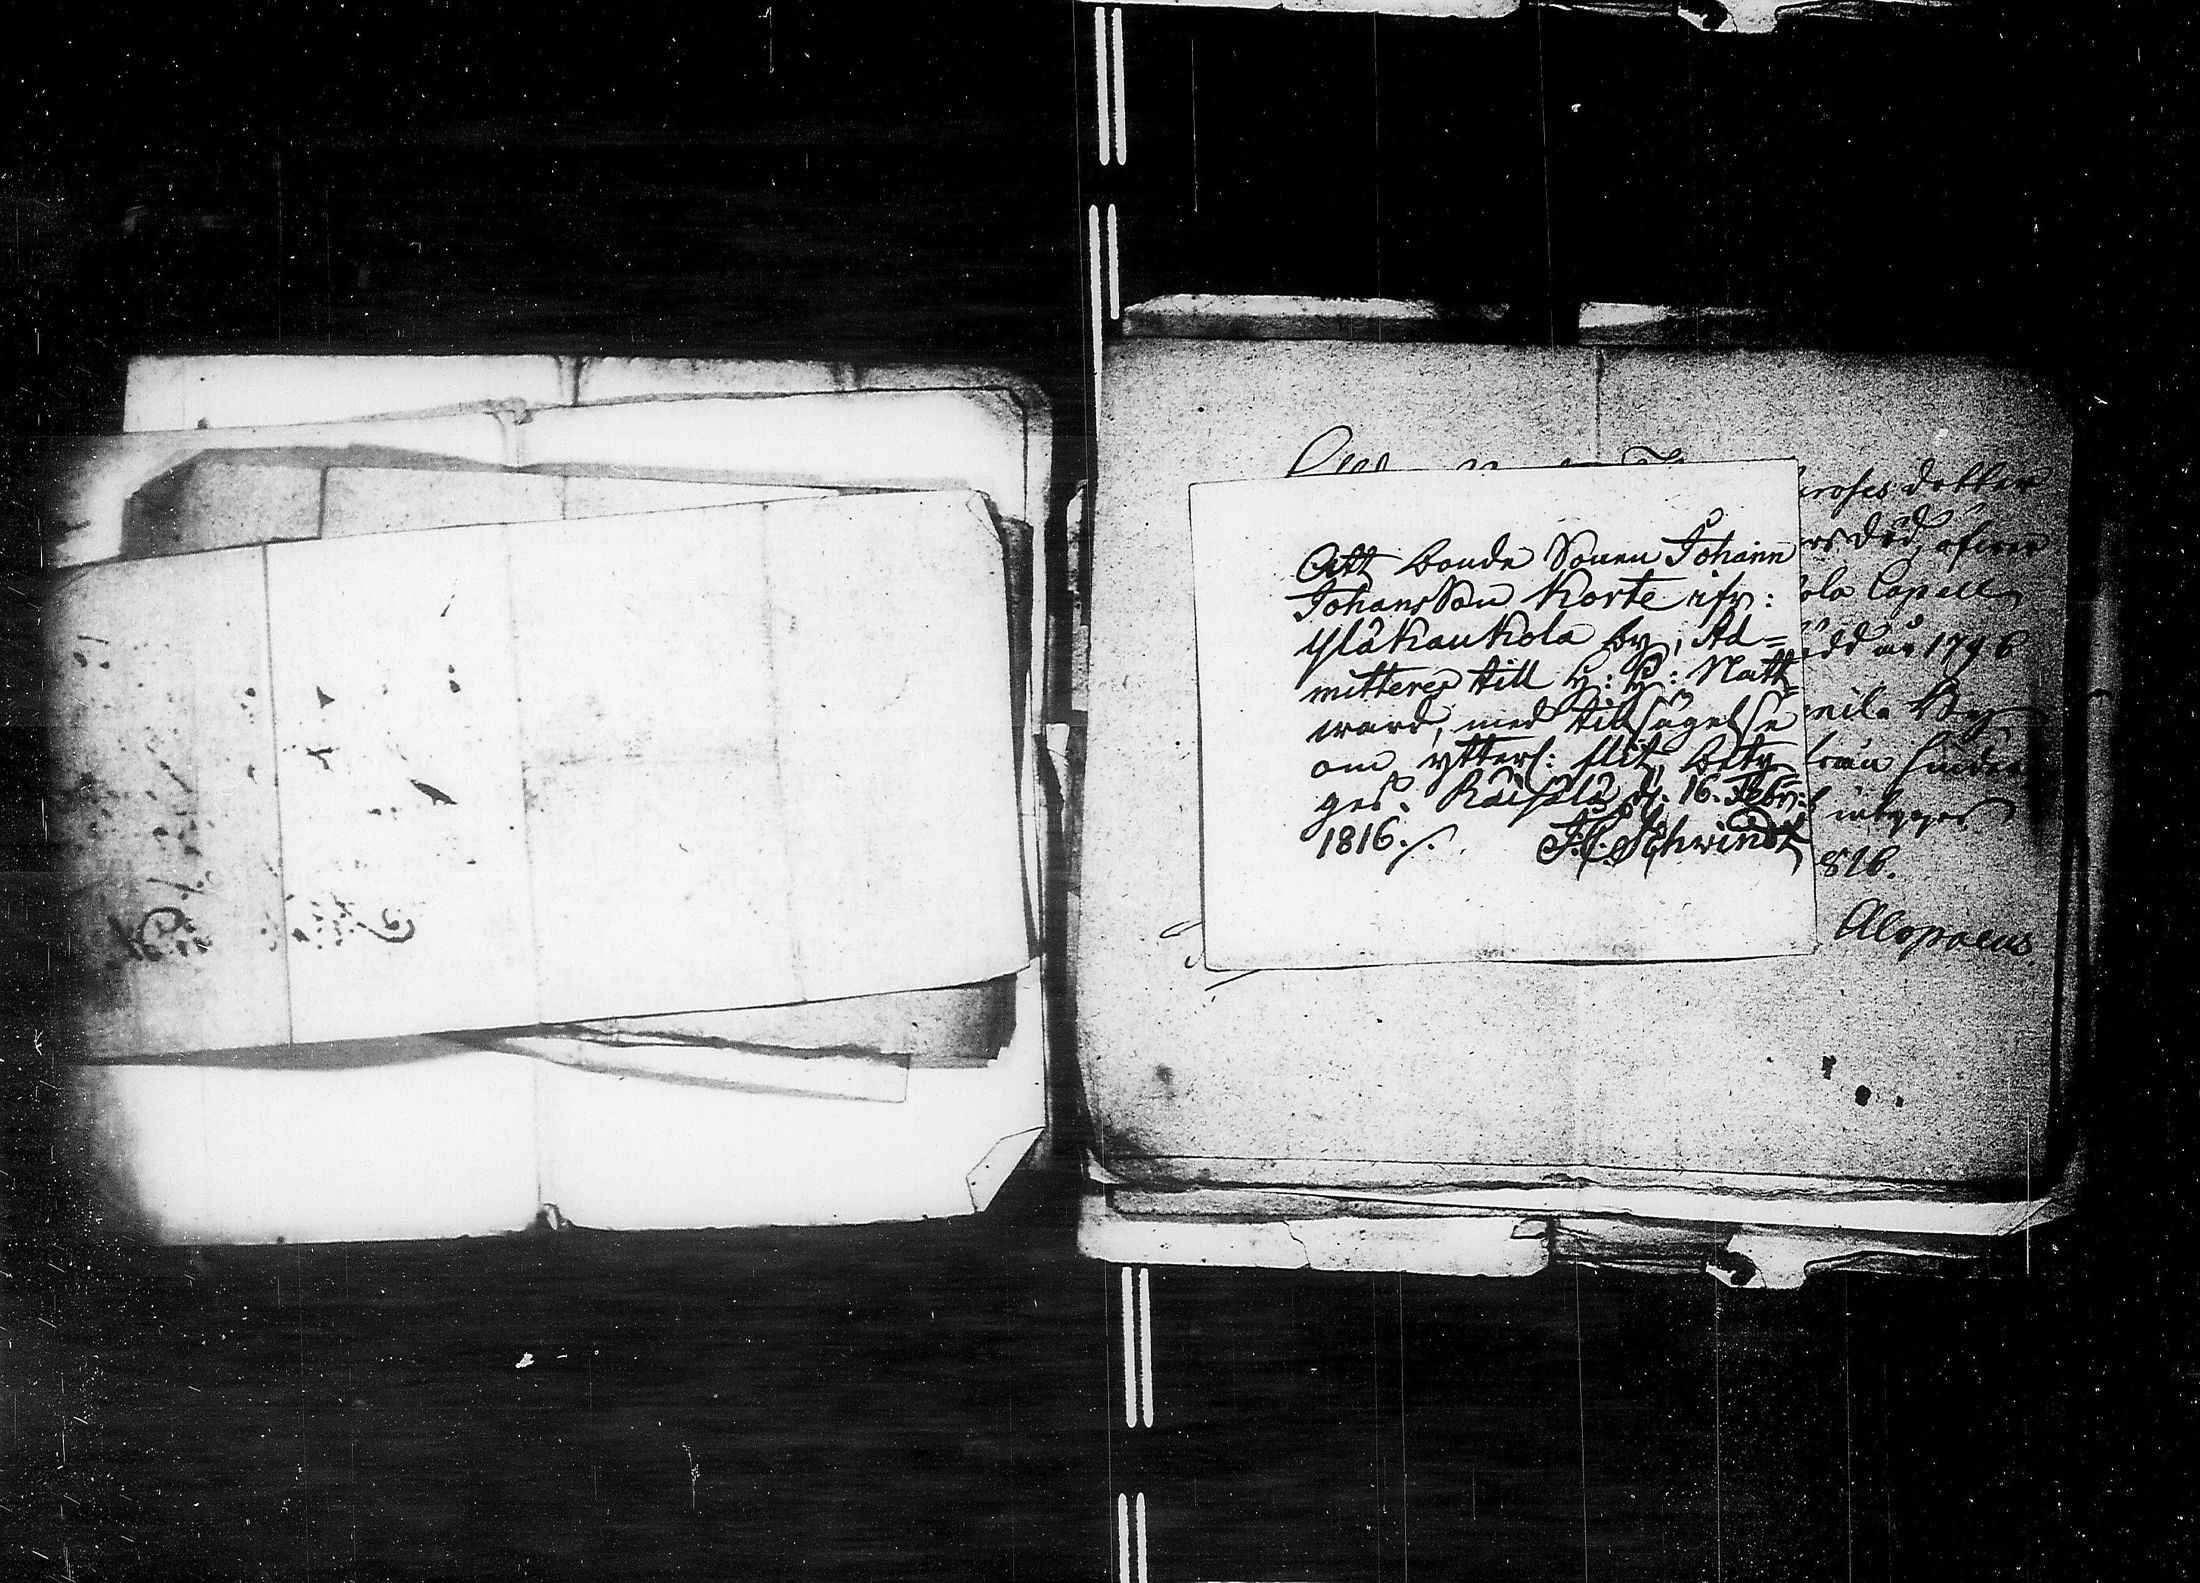 Att bonde Sonen Johann
Johansson Korte ifr:
Yläkaukola by, Ad=
mitteres till H: H: Natt=
ward, med tilsägelse
om ytterl: flit, bety=
ges. Räisälä d: 16. Febr:
1816./. F.C. Schwindt
dotter
död, afwen
ola Capell
född år 1796
By
från
intyges
816.
Alopaeus